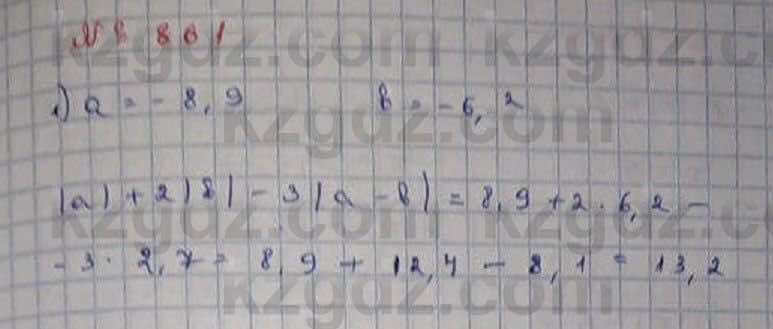 № 801
1) a = - 8,9 b = - 6,2
|a| + 2|b| - 3|a - b| = 8,9 + 2 · 6,2 -
- 3 · 2,7 = 8,9 + 12,4 - 8,1 = 13,2
kzgdz.com kzgdz.com
kzgdz.com
kzgdz.com kzgdz.com
kzgdz.com